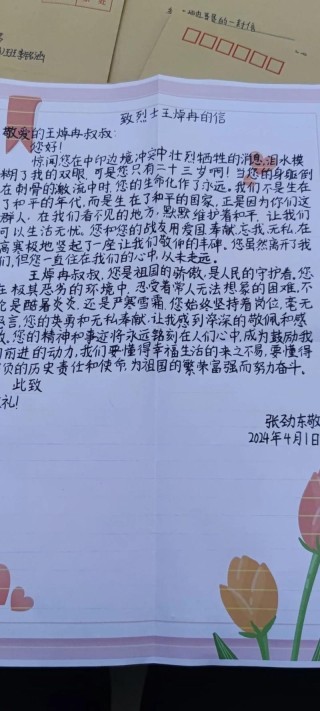 致烈士王焯冉的信
敬爱的王焯冉叔叔:
您好!
惊闻您在中印边境冲突中壮烈牺牲的消息,泪水模
糊了我的双眼,可是您只有二十三岁啊!当您的身躯倒
在刺骨的激流中时,您的生命化作了永远。我们不是生在
了和平的年代,而是生在了和平的国家,正是因为你们这
群人,在我们看不见的地方,默默维护着和平,让我们
可以生活无忧。您和您的战友用爱国奉献,忘我无私,在
高寒极地竖起了一座让我们敬仰的丰碑,您虽然离开了我
们,但您一直住在我们的心中,从未走远。
王焯冉叔叔,您是祖国的骄傲,是人民的守护者,您
在极其恶劣的环境中,忍受着常人无法想象的困难,不
论是酷暑炎炎,还是严寒雪霜,您始终坚持着岗位,毫无
怨言,您的英勇和无私奉献,让我感到深深的敬佩和感
激,您的精神和事迹将永远铭刻在人们心中,成为鼓励我
们前进的动力,我们要懂得幸福生活的来之不易,要懂得
肩负的历史责任和使命,为祖国的繁荣富强而努力奋斗。
此致
敬礼!
张劲东敬
2024年4月1日